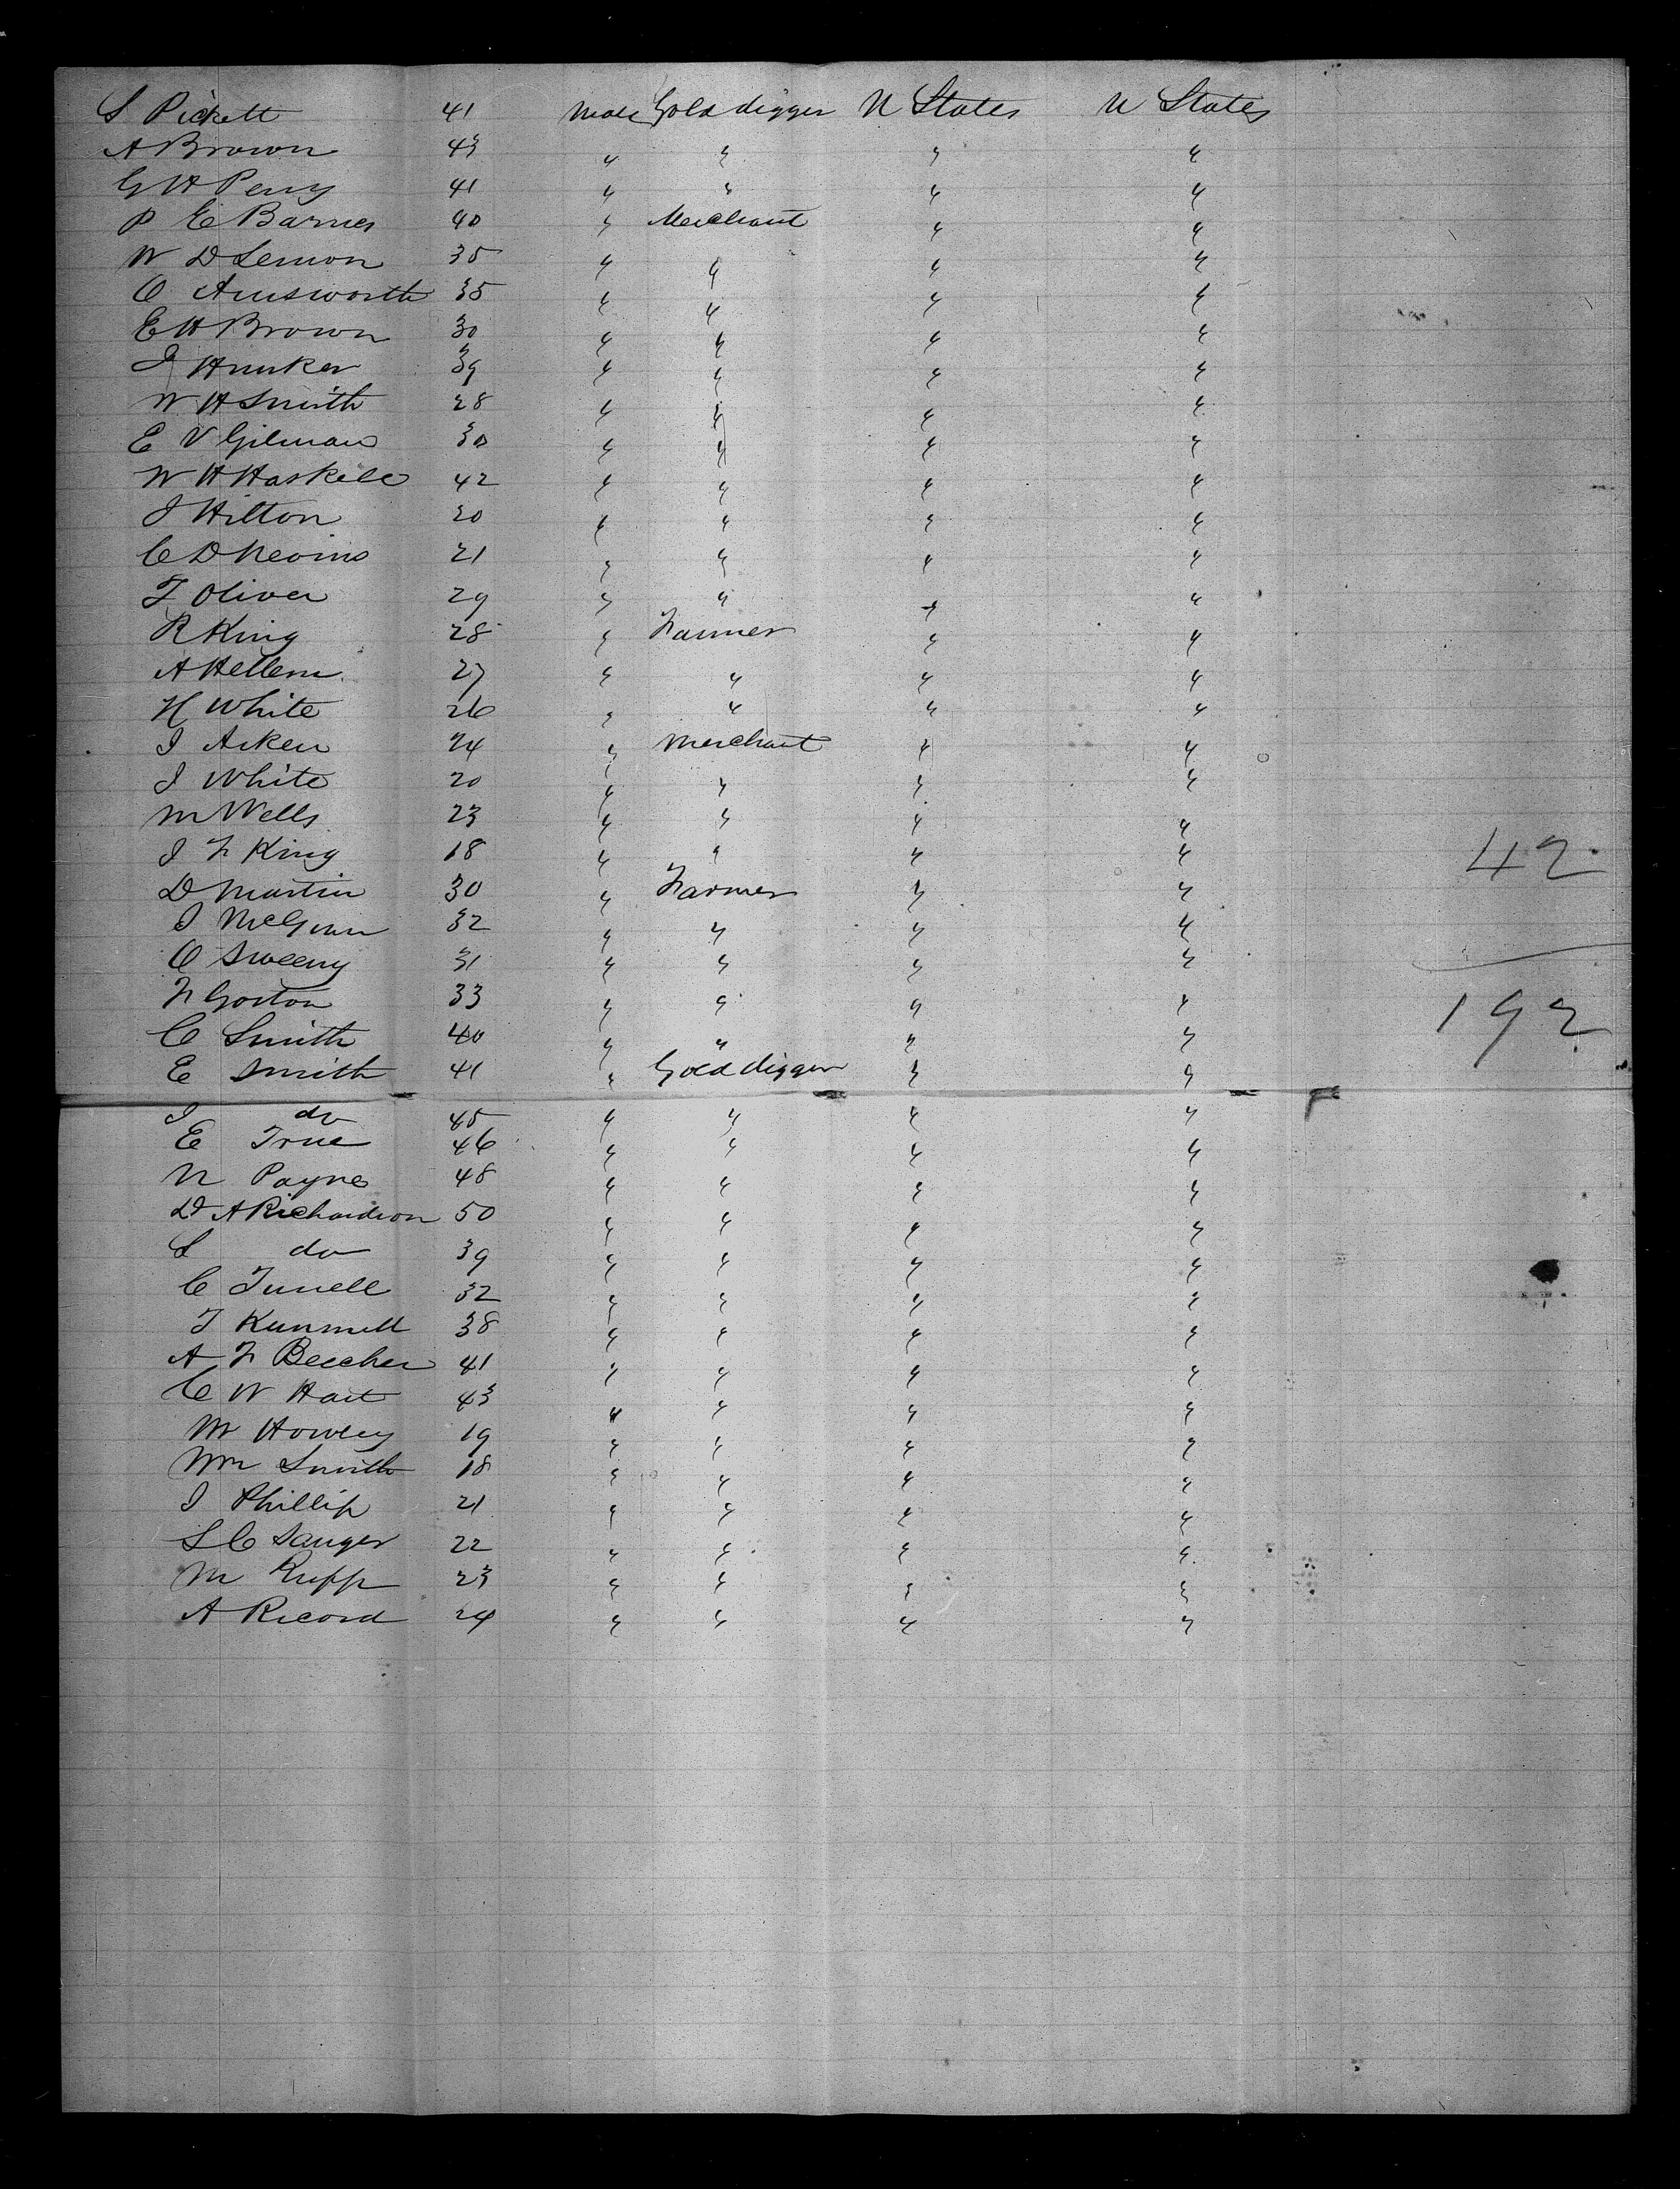 S Pickett 41 Male Gold digger U States U States
A Brown 43 " " " "
G H Perry 41 " " " "
P E Barnes 40 " Merchant " "
W D Lemon 35 " " " "
O Ainsworth 35 " " " "
E H Brown 30 " " " "
J Hunker 39 " " " "
W H Smith 28 " " " "
E V Gilman 30 " " " "
W H Haskell 42 " " " "
J Hilton 20 " " " "
C D Nevins 21 " " " "
T Oliver 29 " " " "
R King 28 " Farmer " "
A Hellem 27 " " " "
H White 26 " " " "
J Aiken 24 " Merchant " "
J White 20 " " " "
M Wells 23 " " " "
J F King 18 " " " "
42
D Martin 30 " Farmer " "
J McGinn 32 " " " "
O Sweeny 31 " " " "
F Gorton 33 " " " "
192
C Smith 40 " " " "
E Smith 41 " Gold digger " "
J do 45 " " " "
E True 46 " " " "
N Payne 48 " " " "
D A Richardson 50 " " " "
L do 39 " " " "
C 32 " " " "
T 38 " " " "
A F Beecher 41 " " " "
C W Hart 43 " " " "
M Howley 19 " " " "
Wm Smith 18 " " " "
J Phillip 21 " " " "
L C Sanger 22 " " " "
M Rupp 23 " " " "
A Record 24 " " " "